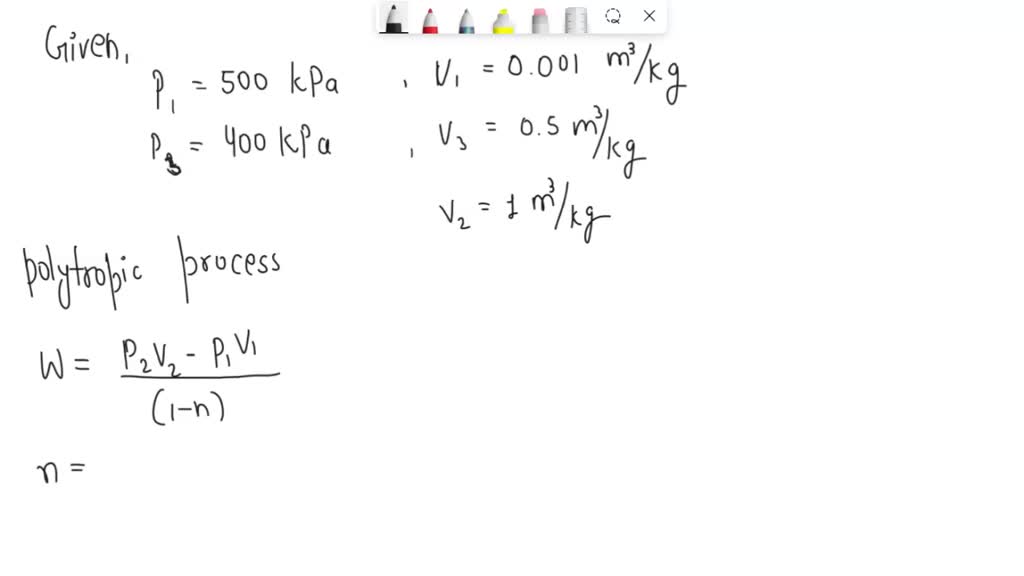 Given,
P₁ = 500 kPa , V₁ = 0.001 m³/kg
P₃ = 400 kPa , V₃ = 0.5 m³/kg
V₂ = 1 m³/kg
polytropic process
W = P₂V₂ - P₁V₁
(1-n)
n =